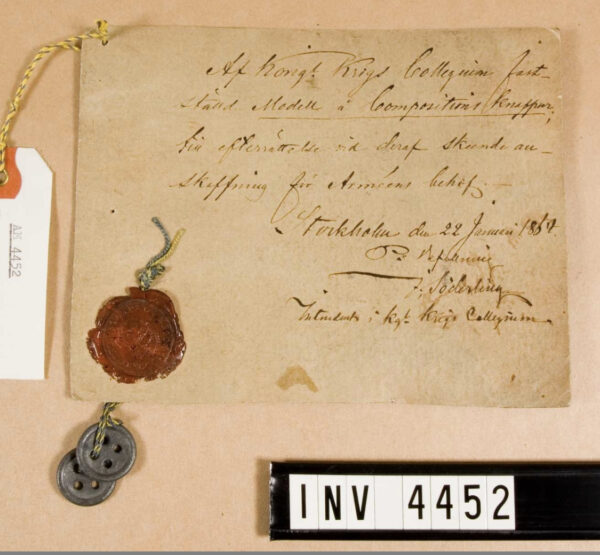 Af Kongl. Krigs Collegium fast-
ställd Modell å Compositions Knappar,
till efterrättelse vid deraf skeende an-
skaffning för Arméens behof. —
Stockholm den 22 Januari
På Befallning
Söderling
Intendent i Kgl. Krigs Collegium.
AM 4452
INV 4452